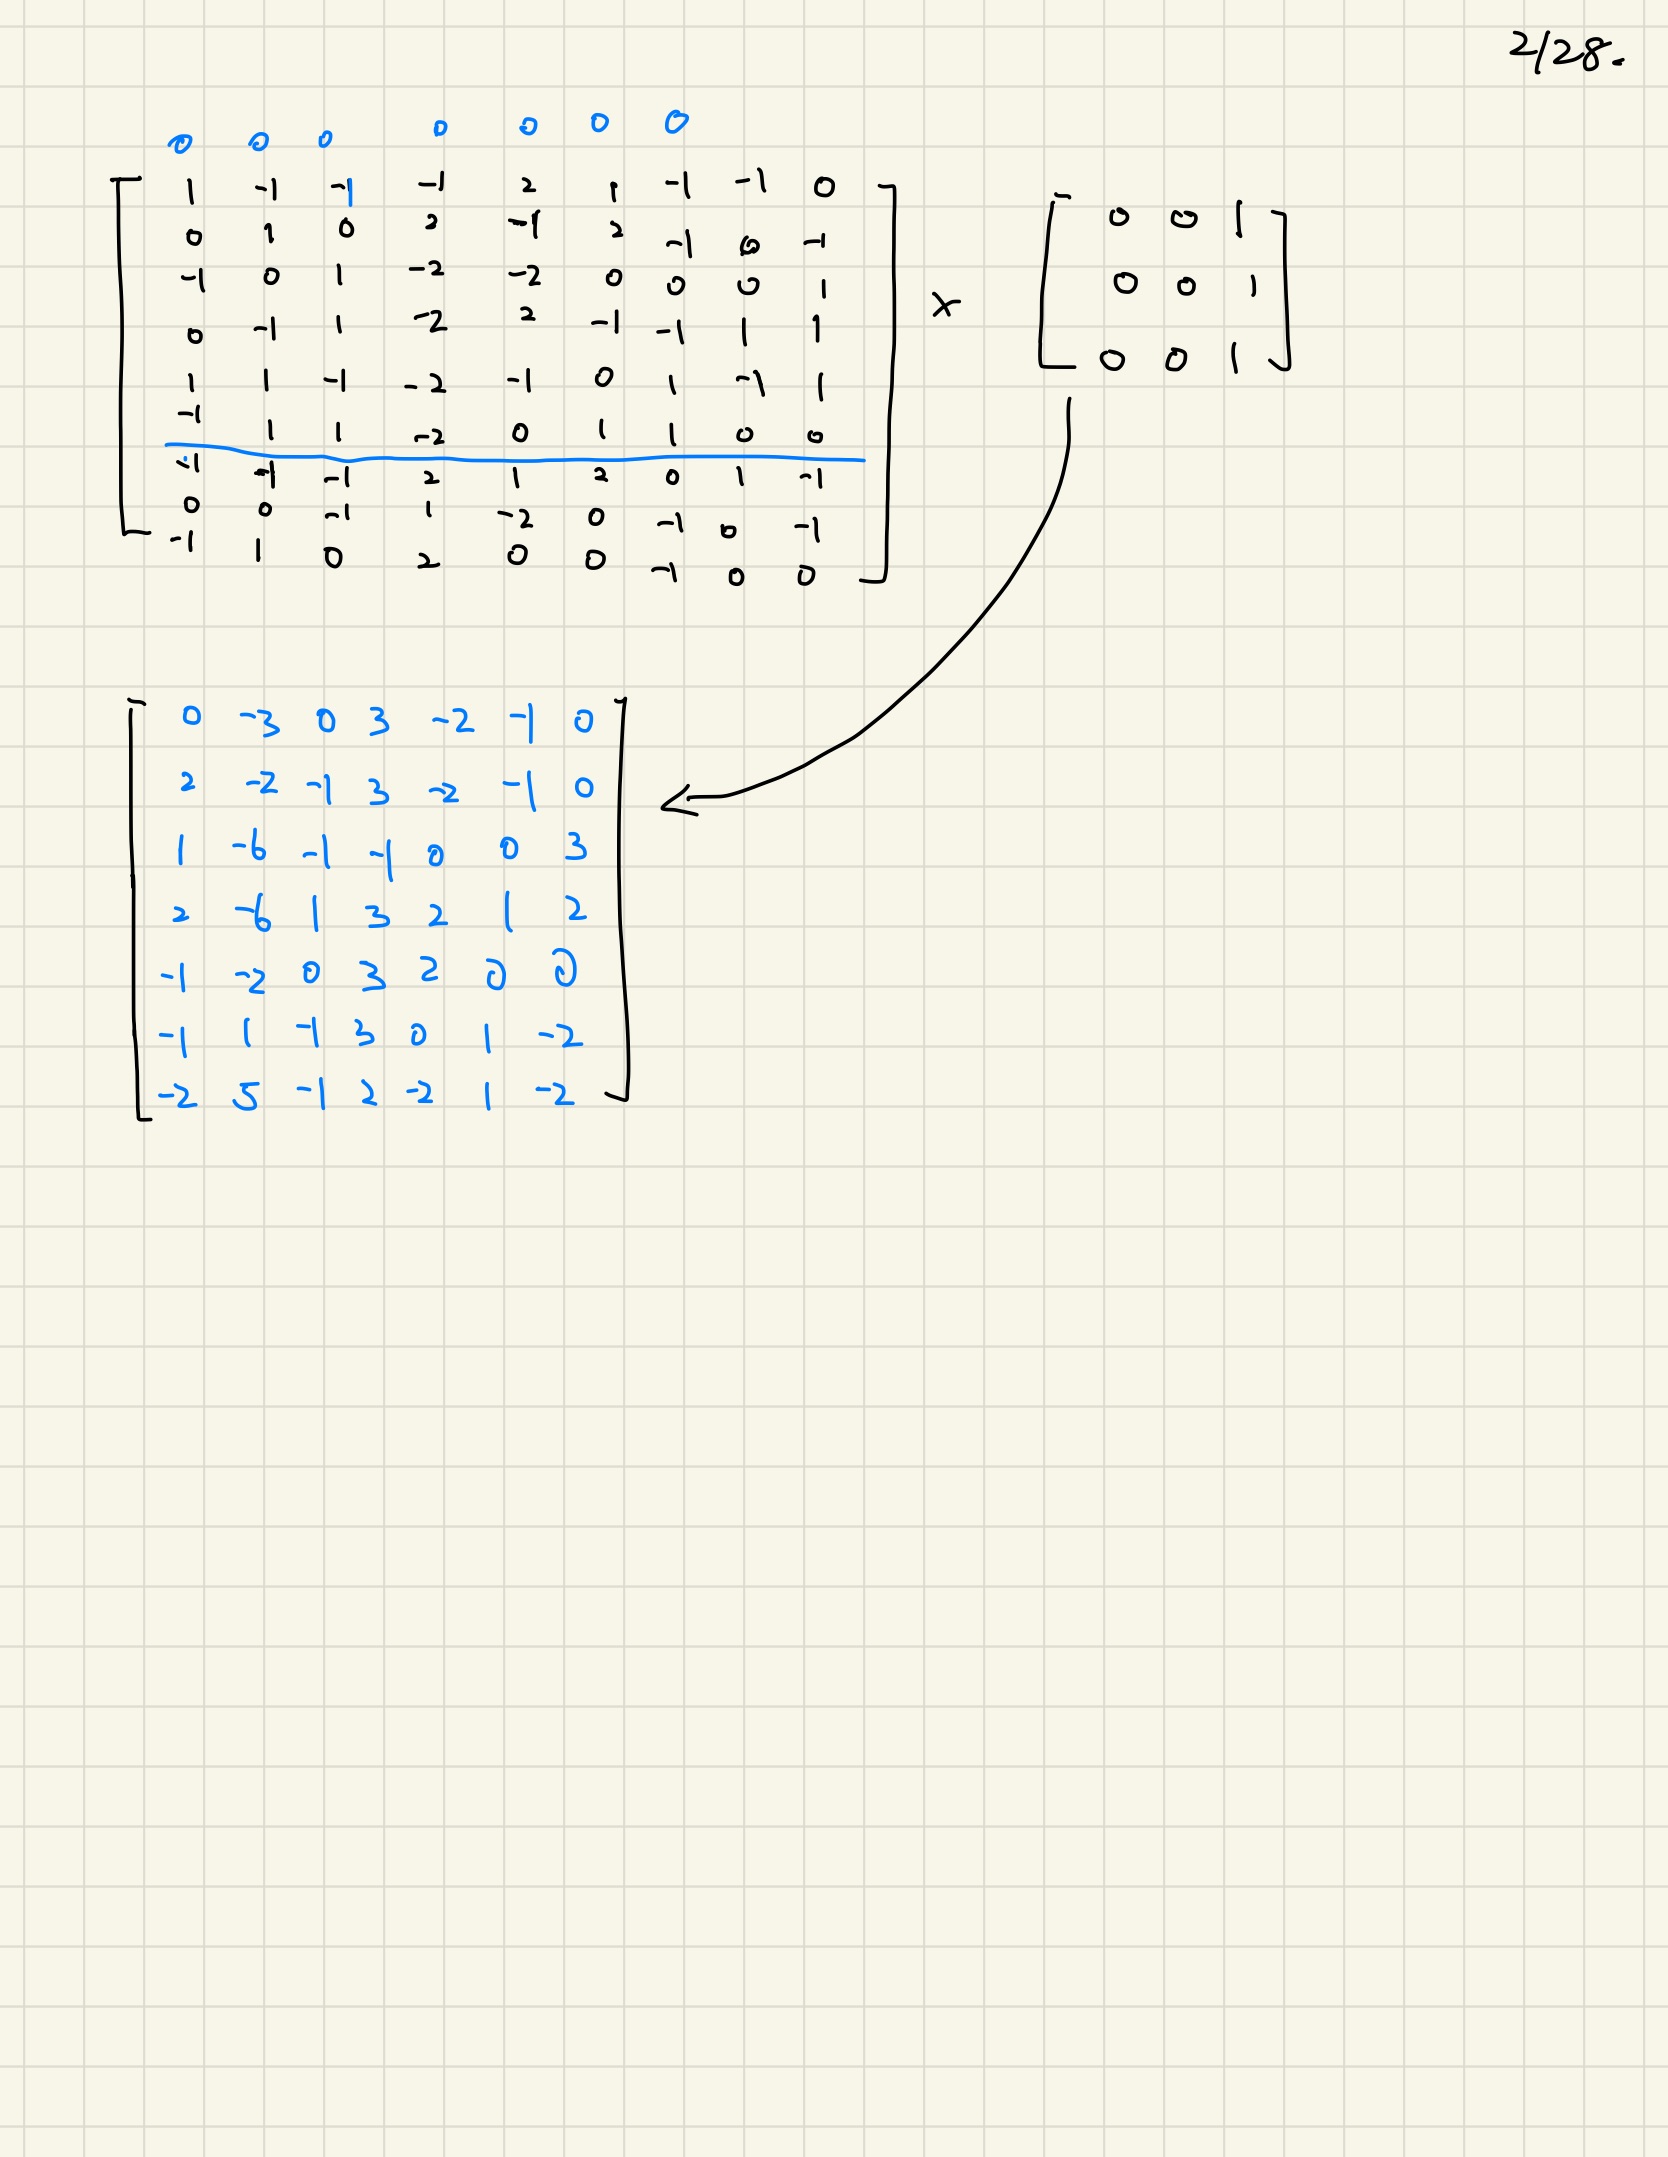 2/28.
0 0 0 0 0 0 0
1 -1 -1 -1 2 1 -1 -1 0
0 1 0 2 -1 2 -1 0 -1
-1 0 1 -2 -2 0 0 0 1
0 -1 1 -2 2 -1 -1 1 1
1 1 -1 -2 -1 0 1 -1 1
-1 1 1 -2 0 1 1 0 0
-1 -1 -1 2 1 2 0 1 -1
0 0 -1 1 -2 0 -1 0 -1
-1 1 0 2 0 0 -1 0 0
×
0 0 1
0 0 1
0 0 1
0 -3 0 3 -2 -1 0
2 -2 -1 3 -2 -1 0
1 -6 -1 -1 0 0 3
2 -6 1 3 2 1 2
-1 -2 0 3 2 0 0
-1 1 -1 3 0 1 -2
-2 5 -1 2 -2 1 -2